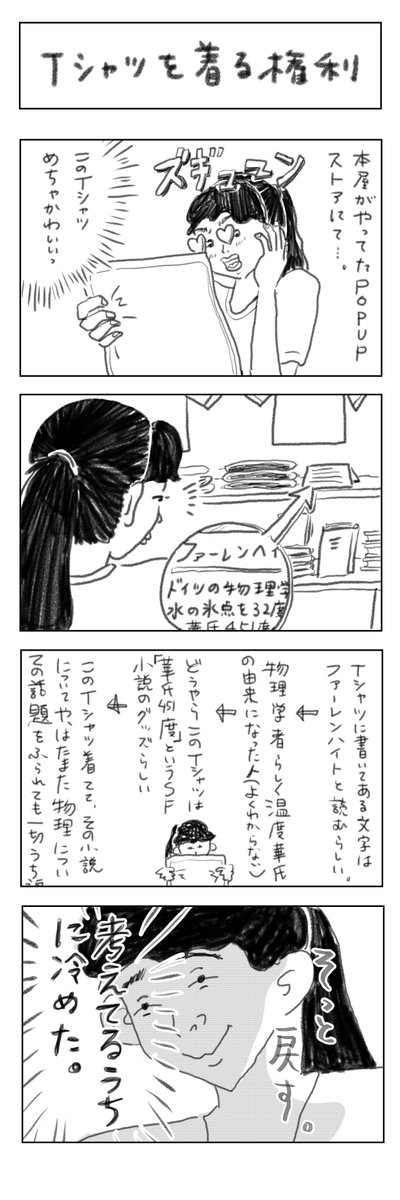 Tシャツを着る権利
本屋がやってたPOPUP
ストアにて…。
ズギューン
このTシャツ
めちゃかわいいっ
ファーレンハイ
ドイツの物理学
水の氷点を32度
華氏451度
Tシャツに書いてある文字は
ファーレンハイトと読むらしい。
物理学者らしく温度華氏
の由来になった人(よくわからない)
どうやらこのTシャツは
「華氏451度」というSF
小説のグッズらしい
このTシャツ着てて、その小説
についてや、はたまた物理につい
ての話題をふられても一切うち返
そっと
戻す。
考えてるうち
に冷めた。